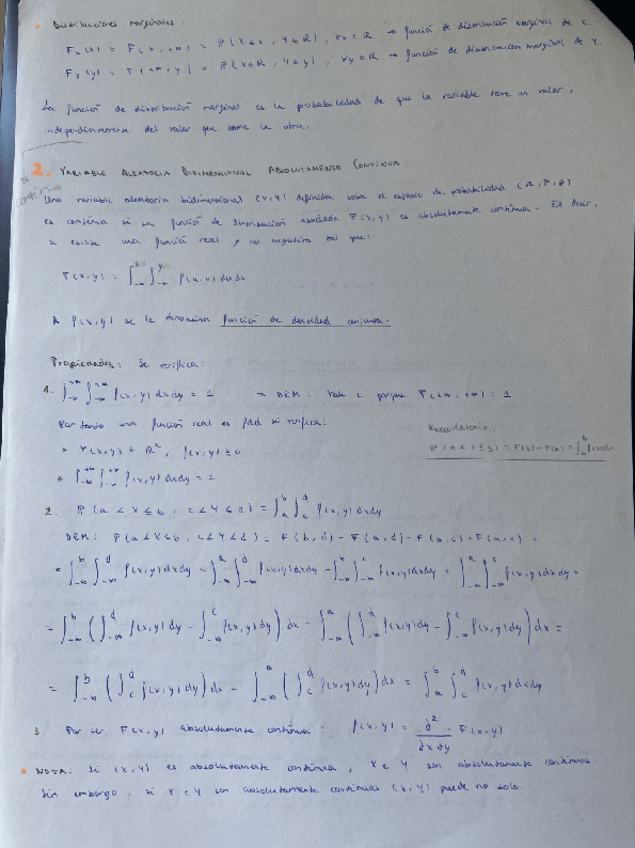 • Distribuciones marginales:
Fx(x) = F(x, +∞) = P(X ≤ x, Y ∈ ℝ), ∀x ∈ ℝ → función de distribución marginal de X.
Fy(y) = F(+∞, y) = P(X ∈ ℝ, Y ≤ y), ∀y ∈ ℝ → función de distribución marginal de Y.
La función de distribución marginal es la probabilidad de que la variable tome un valor,
independientemente del valor que tome la otra.
2. VARIABLE ALEATORIA BIDIMENSIONAL ABSOLUTAMENTE CONTINUA:
continuo
Una variable aleatoria bidimensional (X,Y) definida sobre el espacio de probabilidad
es continua si su función de distribución asociada F(x,y) es absolutamente continua. Es decir,
si existe una función real f no negativa tal que:
F(x,y) = ∫_{-∞}^{x} ∫_{-∞}^{y} f(u,v) du dv
A f(x,y) se le denomina función de densidad conjunta.
Propiedades: Se verifica:
1. ∫_{-∞}^{+∞} ∫_{-∞}^{+∞} f(x,y) dx dy = 1 → DEM: Vale 1 porque F(+∞, +∞) = 1
Por tanto una función real es fdd si verifica:
• ∀(x,y) ∈ ℝ², f(x,y) ≥ 0
• ∫_{-∞}^{+∞} ∫_{-∞}^{+∞} f(x,y) dx dy = 1
Recordatorio:
P(a < X ≤ b) = F(b) - F(a) = ∫_{a}^{b} f(x)dx
2. P(a < X ≤ b, c < Y ≤ d) = ∫_{a}^{b} ∫_{c}^{d} f(x,y) dx dy
DEM: P(a < X ≤ b, c < Y ≤ d) = F(b,d) - F(a,d) - F(b,c) + F(a,c) =
= ∫_{-∞}^{b} ∫_{-∞}^{d} f(x,y) dx dy - ∫_{-∞}^{a} ∫_{-∞}^{d} f(x,y) dx dy - ∫_{-∞}^{b} ∫_{-∞}^{c} f(x,y) dx dy + ∫_{-∞}^{a} ∫_{-∞}^{c} f(x,y) dx dy =
= ∫_{-∞}^{b} (∫_{-∞}^{d} f(x,y) dy - ∫_{-∞}^{c} f(x,y) dy) dx - ∫_{-∞}^{a} (∫_{-∞}^{d} f(x,y) dy - ∫_{-∞}^{c} f(x,y) dy) dx =
= ∫_{-∞}^{b} (∫_{c}^{d} f(x,y) dy) dx - ∫_{-∞}^{a} (∫_{c}^{d} f(x,y) dy) dx = ∫_{a}^{b} ∫_{c}^{d} f(x,y) dx dy
3. Por ser F(x,y) absolutamente continua: f(x,y) = ∂²/∂x∂y · F(x,y)
• NOTA: Si (X,Y) es absolutamente continua, X e Y son absolutamente continuas
Sin embargo, si X e Y son absolutamente continuas (X,Y) puede no serlo.